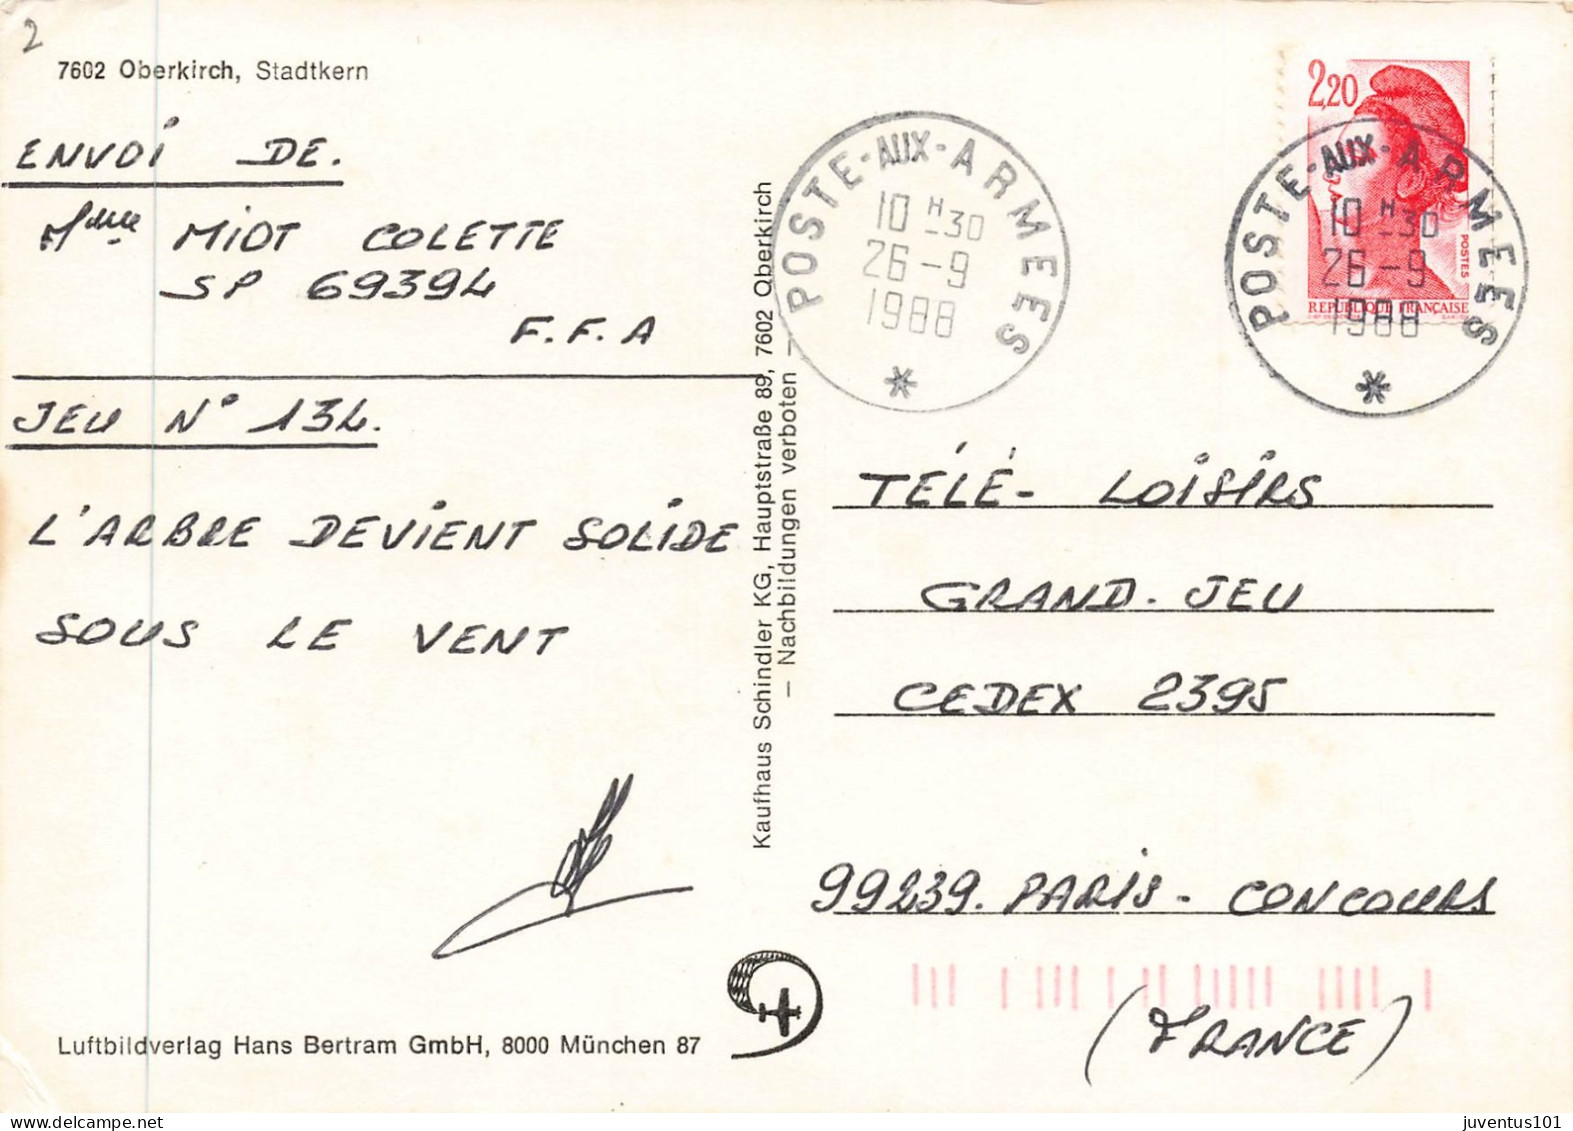 2
7602 Oberkirch, Stadtkern
ENVOI DE.
Mme MIOT COLETTE
SP 69394
F.F.A
JEU N° 134.
L'ARBRE DEVIENT SOLIDE
SOUS LE VENT
Luftbildverlag Hans Bertram GmbH, 8000 München 87
Kaufhaus Schindler KG, Hauptstraße 89, 7602 Oberkirch
— Nachbildungen verboten —
POSTE-AUX-ARMEES
10 H 30
26-9
1988
*
2,20
POSTES
REPUBLIQUE FRANÇAISE
POSTE-AUX-ARMEES
10 H 30
26-9
1988
*
TÉLÉ- LOISIRS
GRAND. JEU
CEDEX 2395
99239. PARIS - CONCOURS
(FRANCE)
juventus101